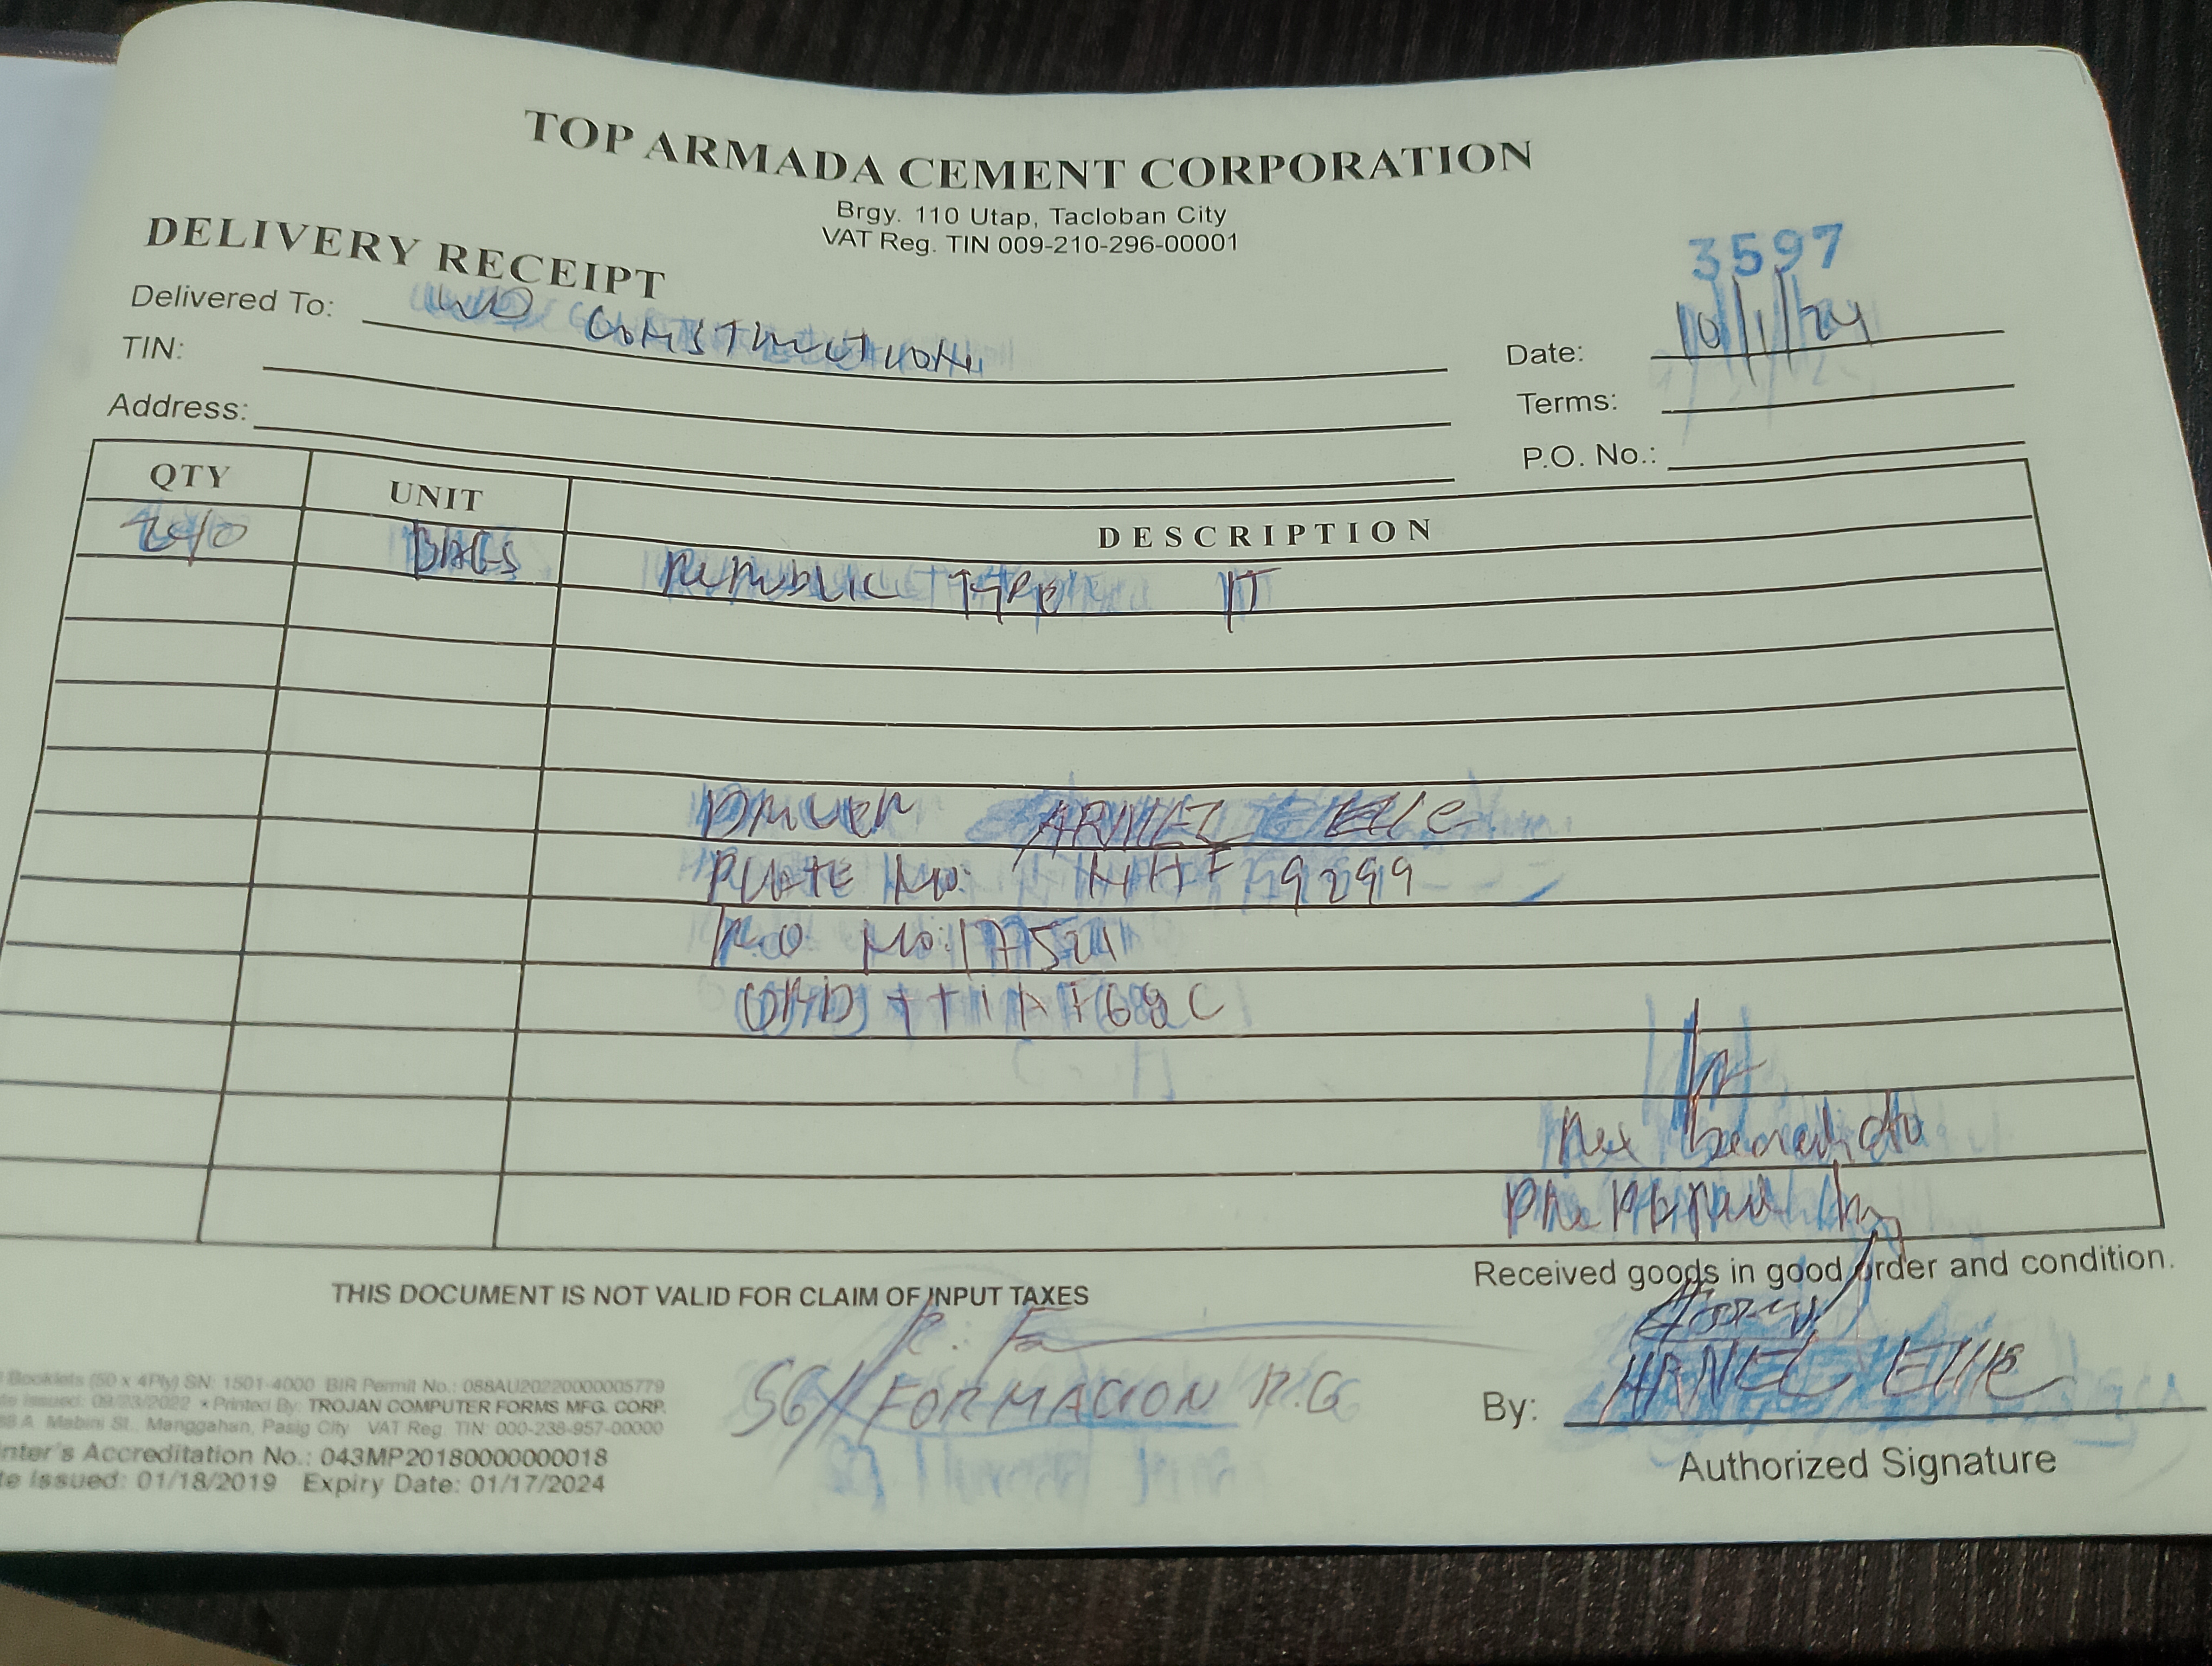 TOP ARMADA CEMENT CORPORATION
Brgy. 110 Utap, Tacloban City
VAT Reg. TIN 009-210-296-00001
DELIVERY RECEIPT
3597
Delivered To: Construction
Date: 10/1/24
TIN:
Terms:
Address:
P.O. No.:
QTY UNIT DESCRIPTION
240 BAGS Republic Type IT
Driver ARNEL Elle
Plate No: 9299
No:
Rex Benedicto
Received goods in good order and condition.
THIS DOCUMENT IS NOT VALID FOR CLAIM OF INPUT TAXES
SG/FORMACION R.G
By: ARNEL Elle
Authorized Signature
Booklets (50 x 4Ply) SN: 1501-4000 BIR Permit No.: 088AU20220000005779
Issued: 09/23/2022 * Printed By: TROJAN COMPUTER FORMS MFG. CORP.
A. Mabini St., Manggahan, Pasig City VAT Reg. TIN: 000-238-957-00000
nter's Accreditation No.: 043MP20180000000018
te Issued: 01/18/2019 Expiry Date: 01/17/2024